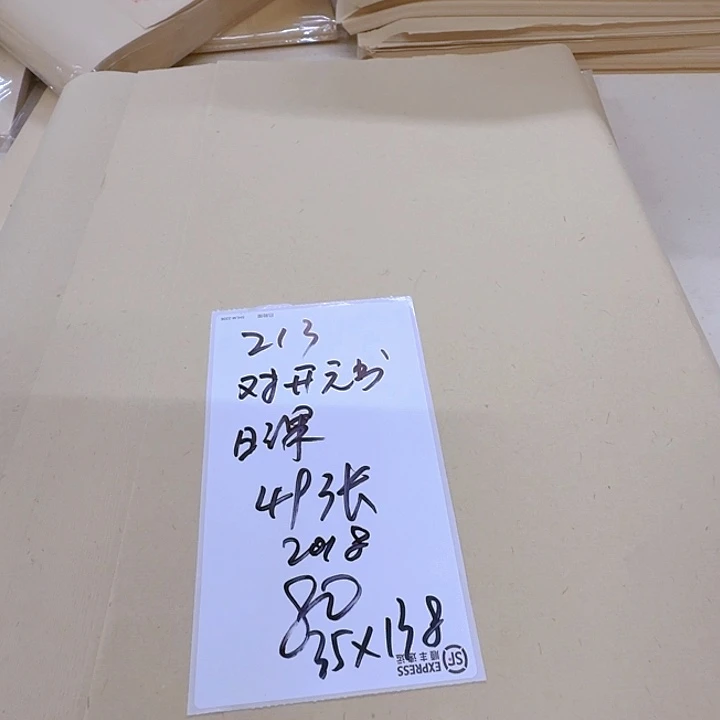 213
对开元书
日课
49张
2018
80
35×138
SF
EXPRESS
顺丰速运